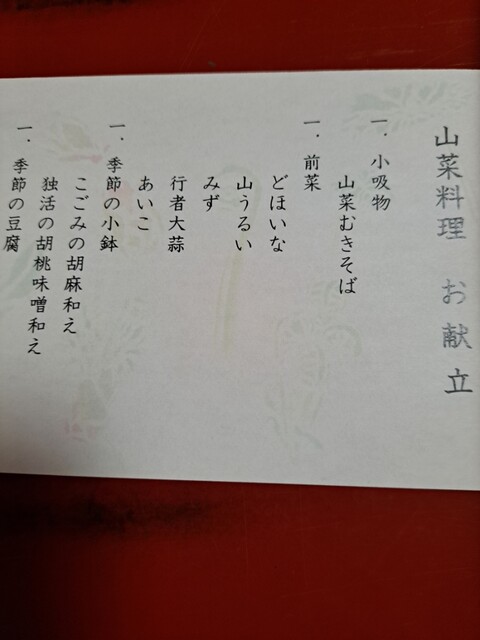 山菜料理 お献立
一. 小吸物
山菜むきそば
一. 前菜
どほいな
山うるい
みず
行者大蒜
あいこ
一. 季節の小鉢
こごみの胡麻和え
独活の胡桃味噌和え
一. 季節の豆腐